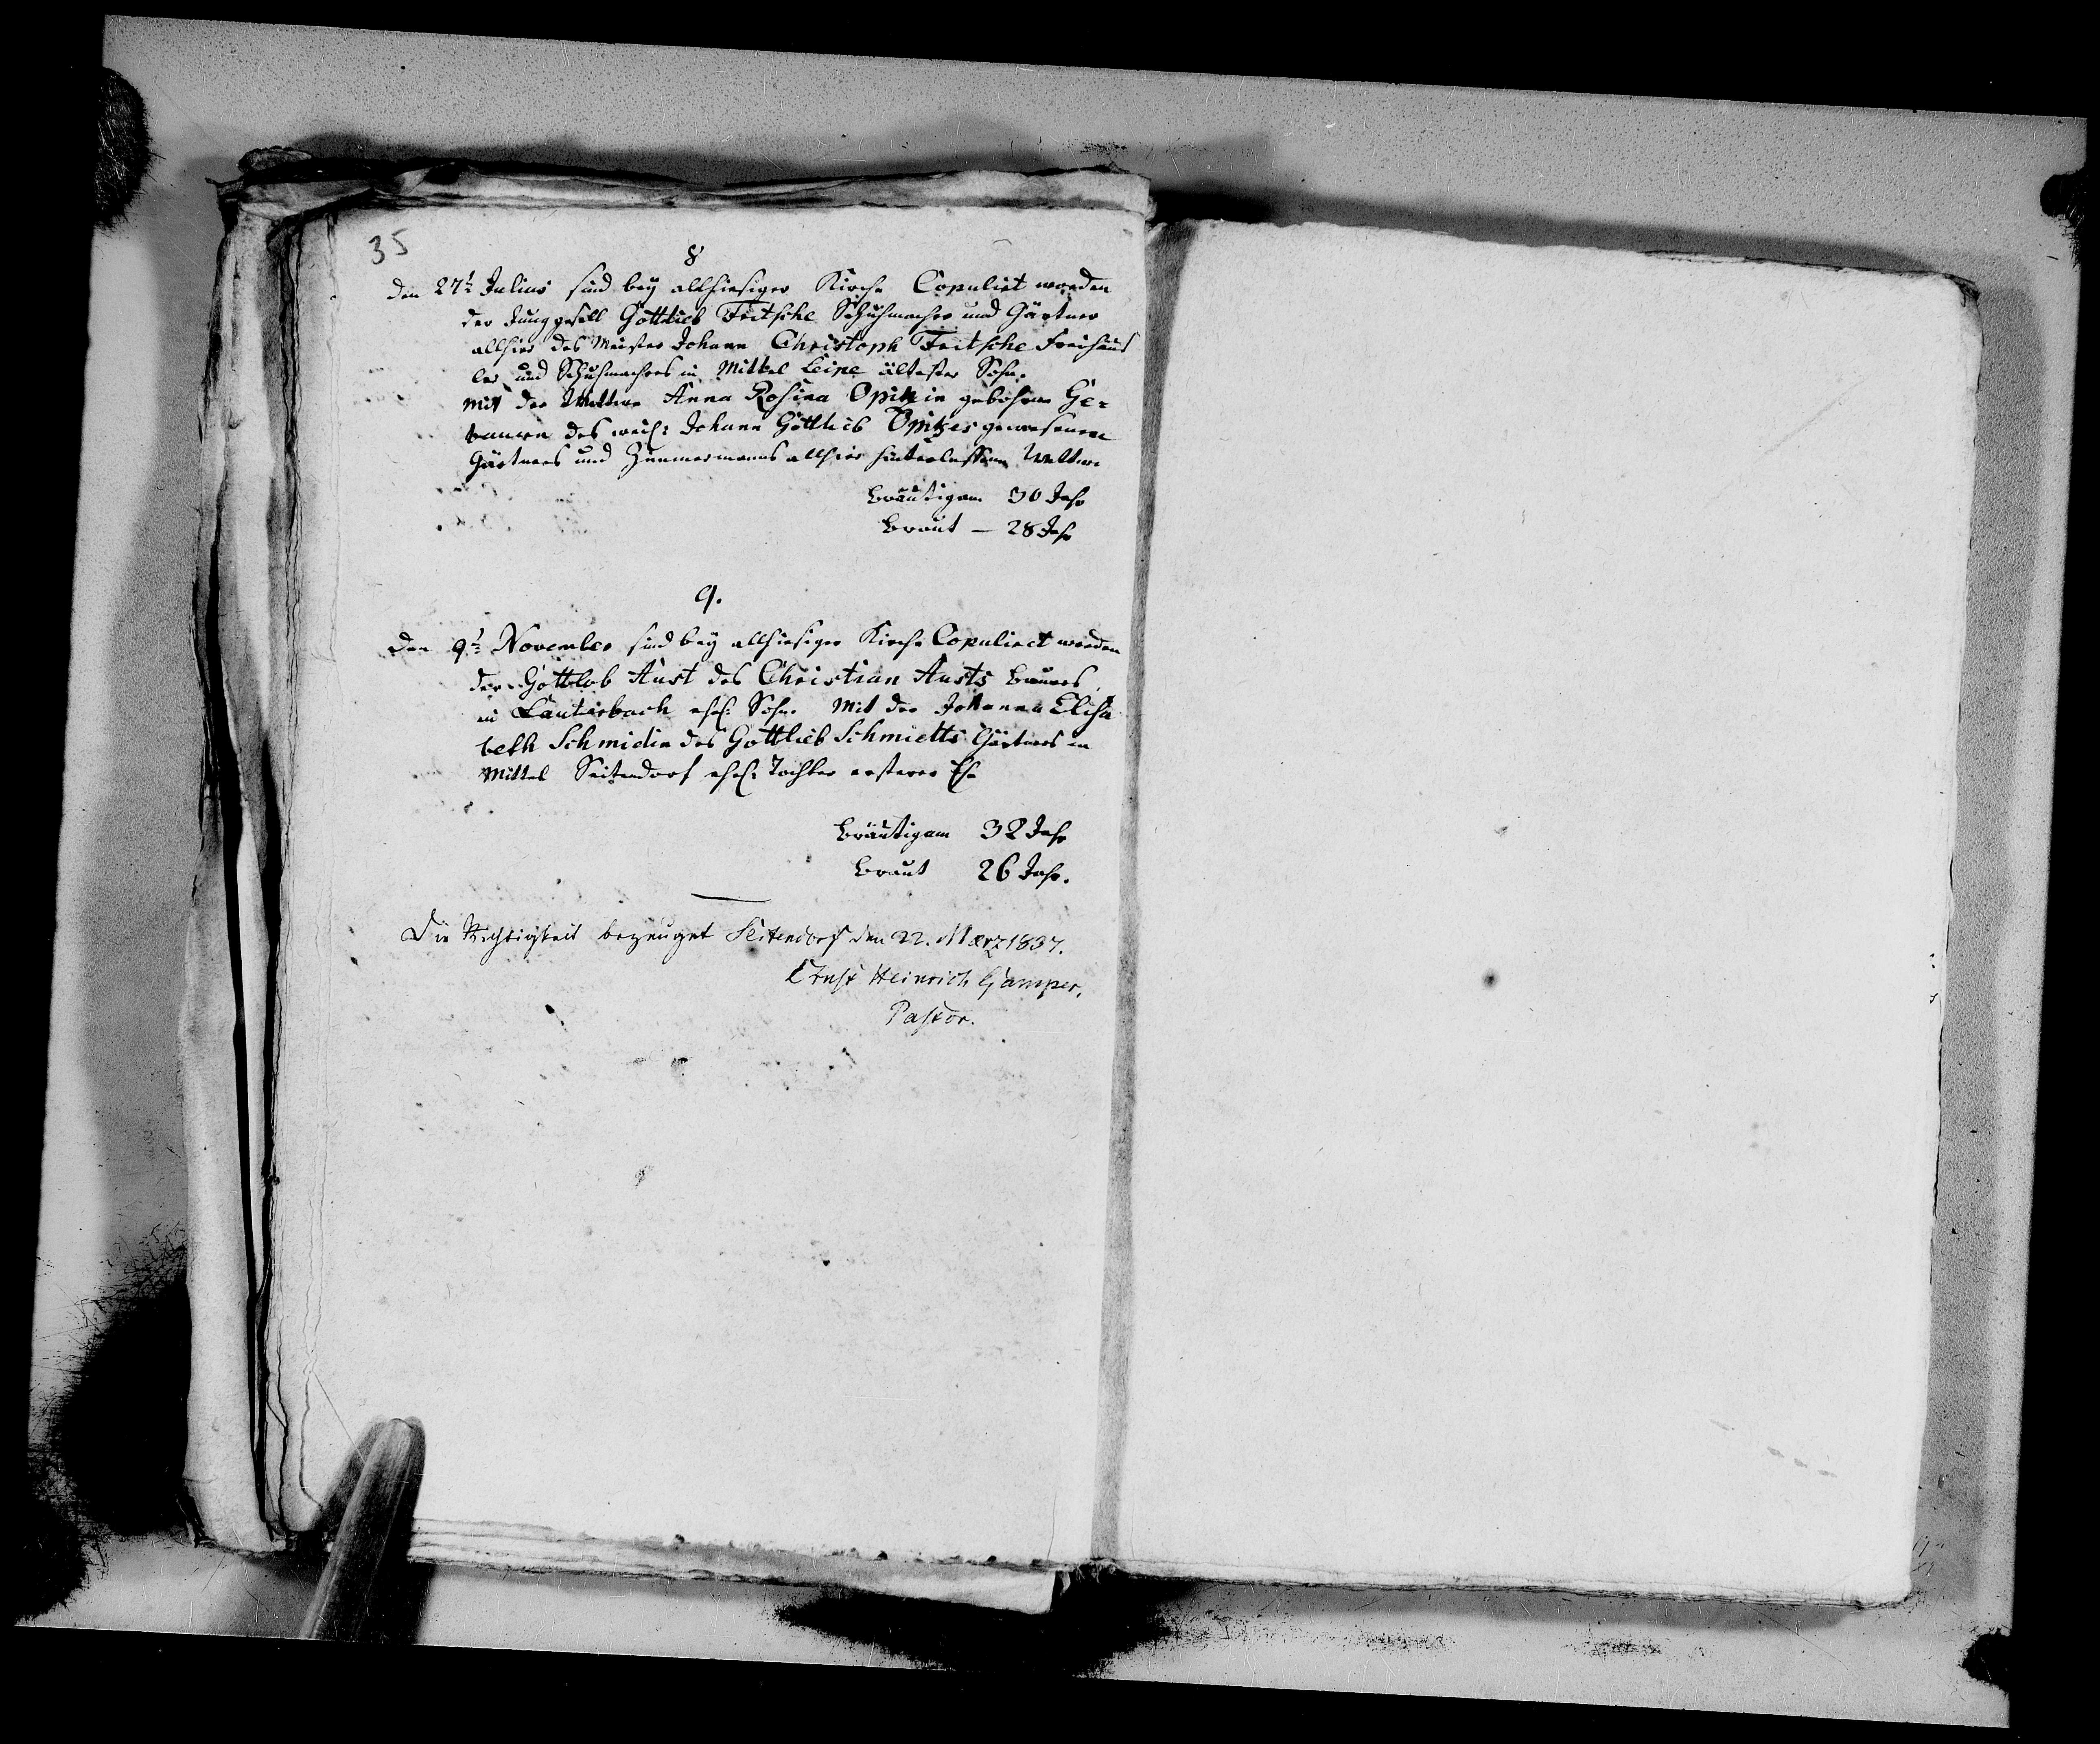 35
8
den 27t Julius sind bey allhiesiger Kirche Copuliet worden
der Junggesell Gottlieb Feitsche Schuhmacher und Gärtner
allhier des Meister Johann Christoph Feitsche Freihäus
ler und Schuhmachers in Mittel Leipe ältester Sohn.
mit der Wittwe Anna Rosina Opitzin gebohrne Ge-
bauern des weil: Johann Gottlieb Opitzes gewesenen
Gärtners und Zimmermanns allhier hinterlassene Wittwe
Bräutigam 30 Jahr
Braut — 28 Jahr
9.
Den 9t November sind bey allhiesiger Kirche Copuliret worden
der Gottlob Aust des Christian Austs Bauers
in Lauterbach ehel: Sohn. Mit der Johanna Elisa
beth Schmidin des Gottlieb Schmiedts Gärtners in
Mittel Seitendorf ehel: Tochter ersterer Ehe
Bräutigam 32 Jahr
Braut 26 Jahr.
Die Richtigkeit bezeuget Seitendorf den 22. Maerz 1837.
Ernst Heinrich Gamper,
Pastor.